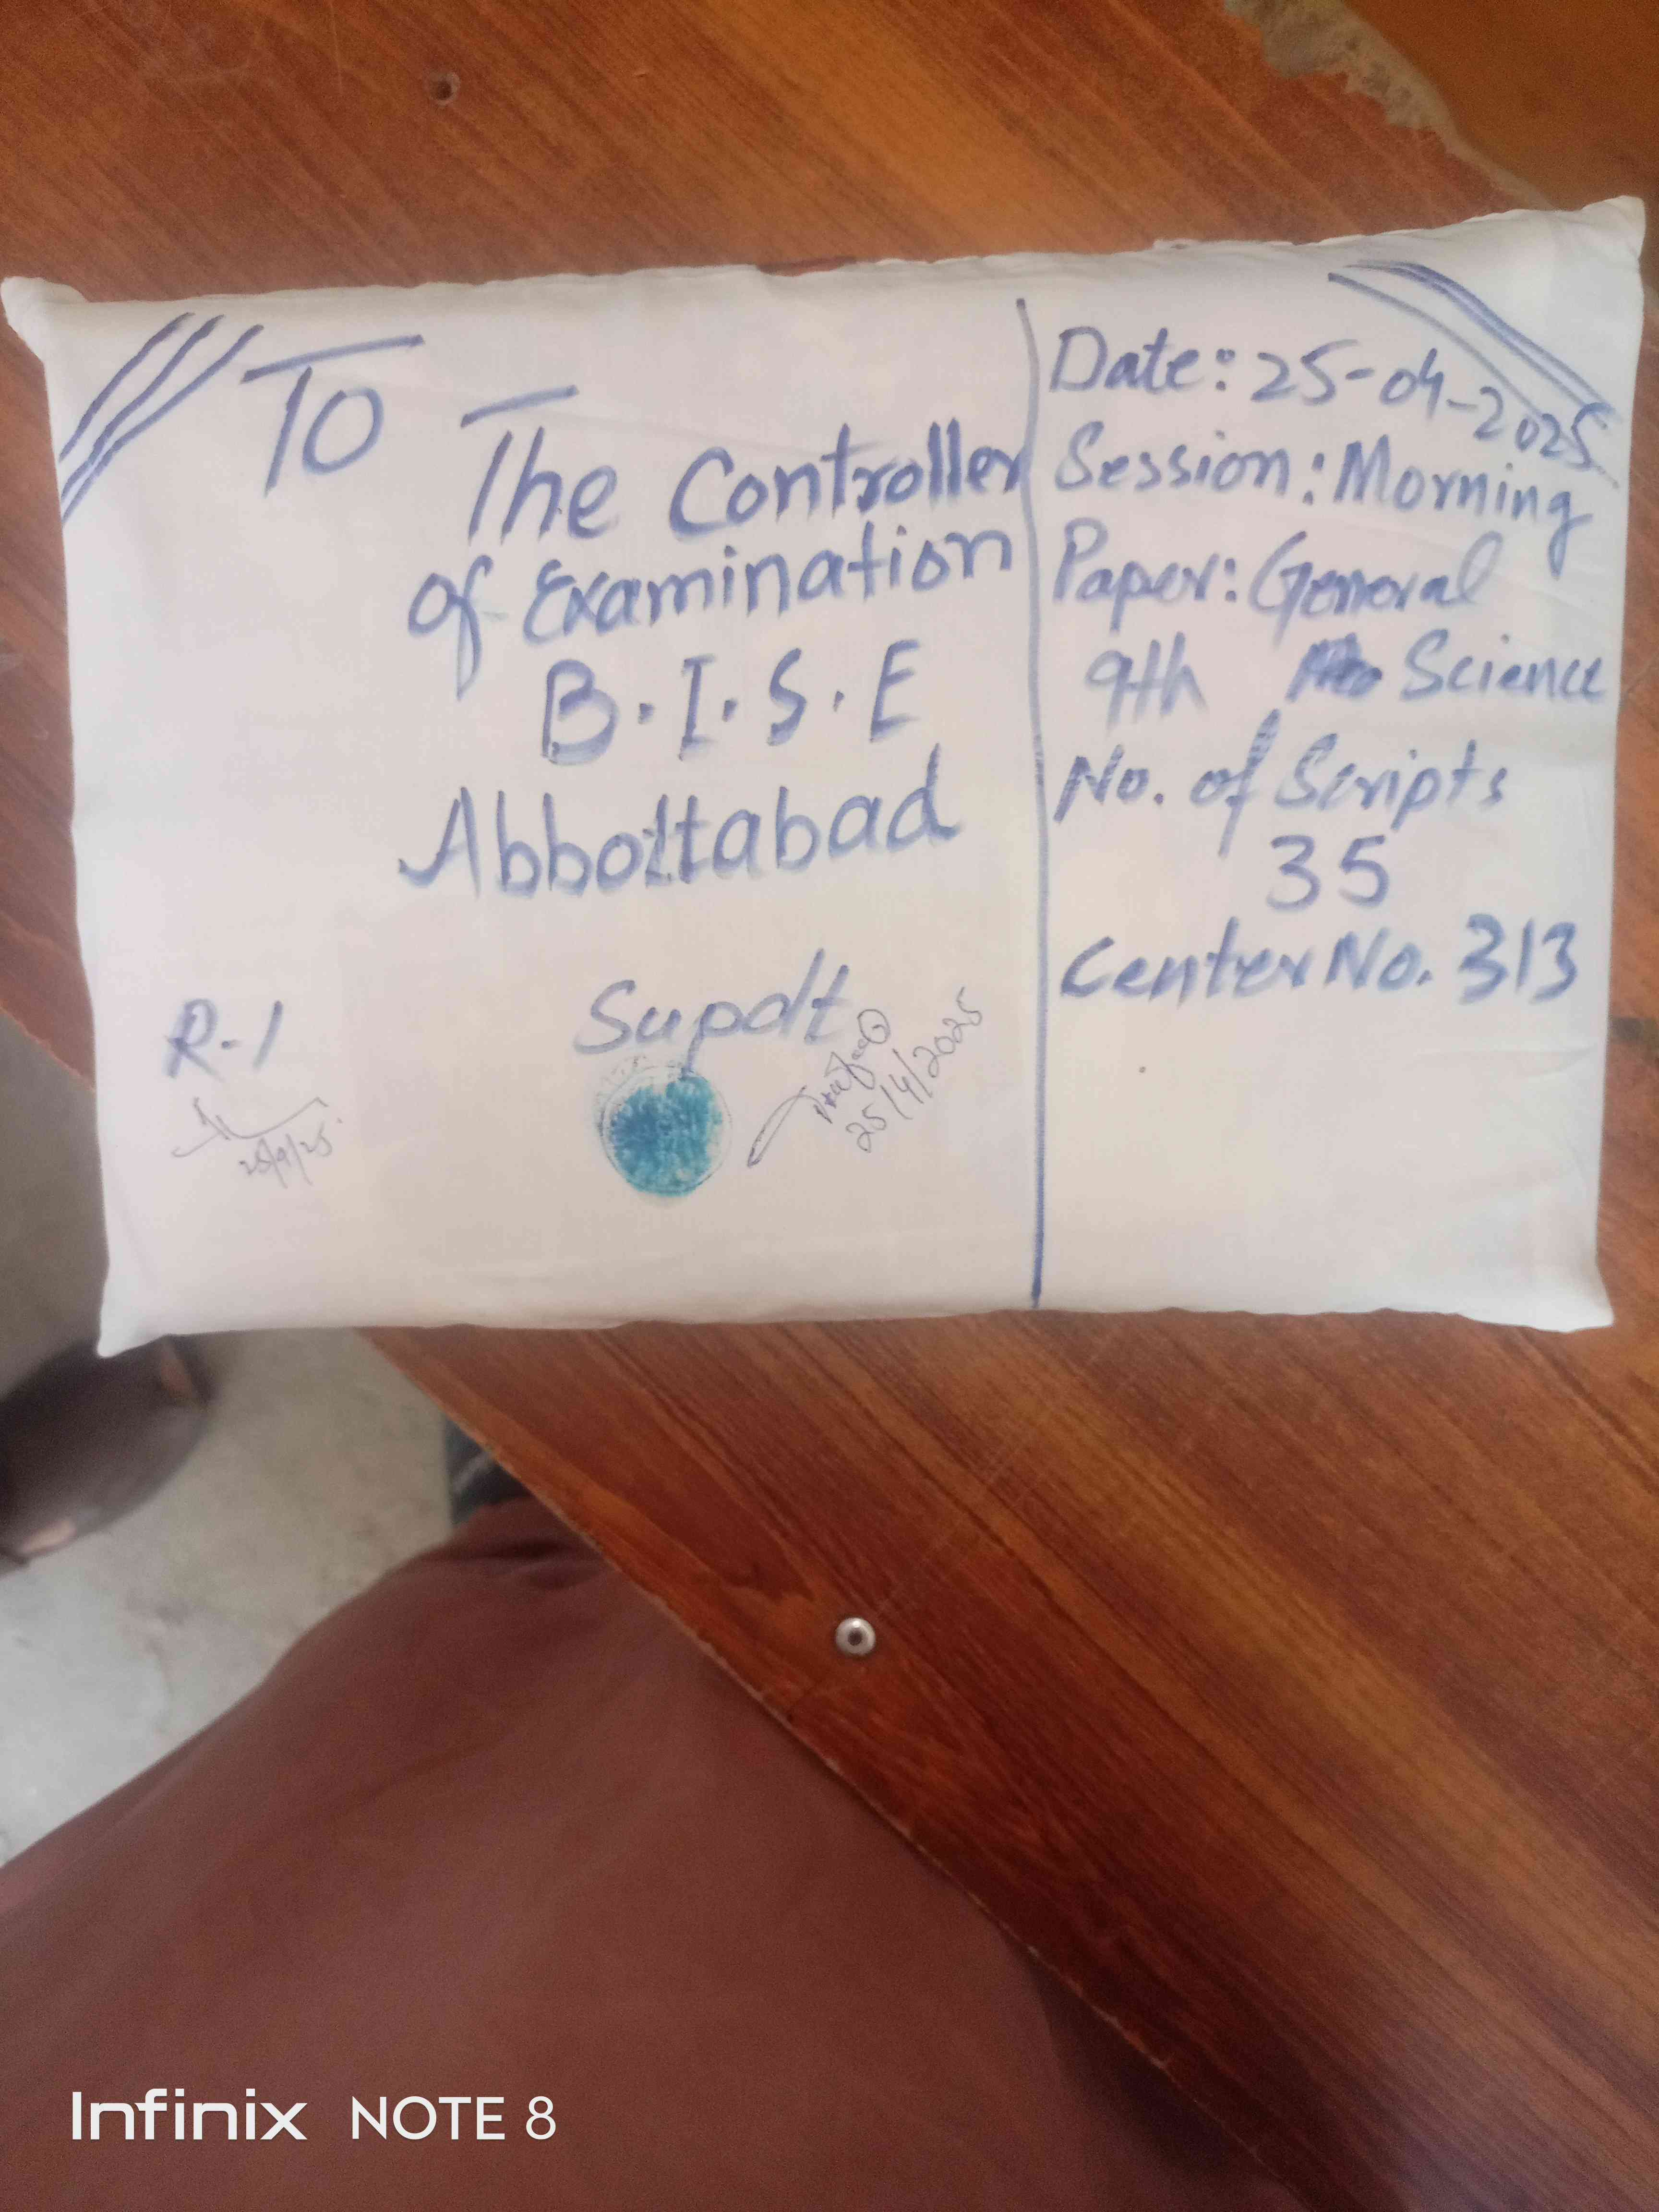 To
The Controller
of Examination
B.I.S.E
Abbottabad
Supdt
25/4/2025
R-1
Date: 25-04-2025
Session: Morning
Paper: General
9th Science
No. of Scripts
35
Center No. 313
Infinix NOTE 8